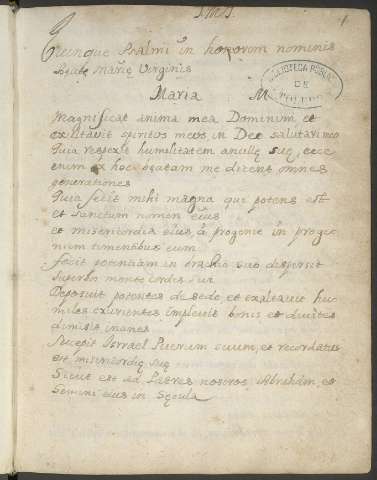 1
Quinque Psalmi in honorem nominis
Virginis
Maria M
Magnificat anima mea Dominum et
exultavit spiritus meus in Deo salutari meo
Quia respexit humilitatem ancillę suę, ecce
enim ex hoc beatam me dicent omnes
generationes
Quia fecit mihi magna qui potens est
et sanctum nomen eius
et misericordia eius á progenie in proge
niem timentibus eum
fecit potentiam in brachio suo dispersit
superbos mente cordis sui
Deposuit potentes de sede, et exaltavit hu
miles exurientes implevit bonis et divites
dimisit inanes
Sucepit Isrrael Puerum suum, et recordatus
est misericordię suę
Sicut est ad Patres nostros Abraham, et
Semini eius in Sęcula
BIBLIOTECA PUBLICA
DE
TOLEDO